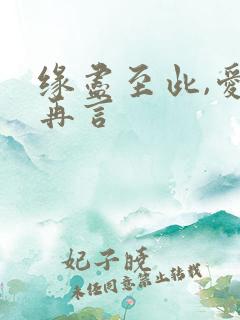 缘尽至此,爱
再言
妃子暁
未经同意禁止转载